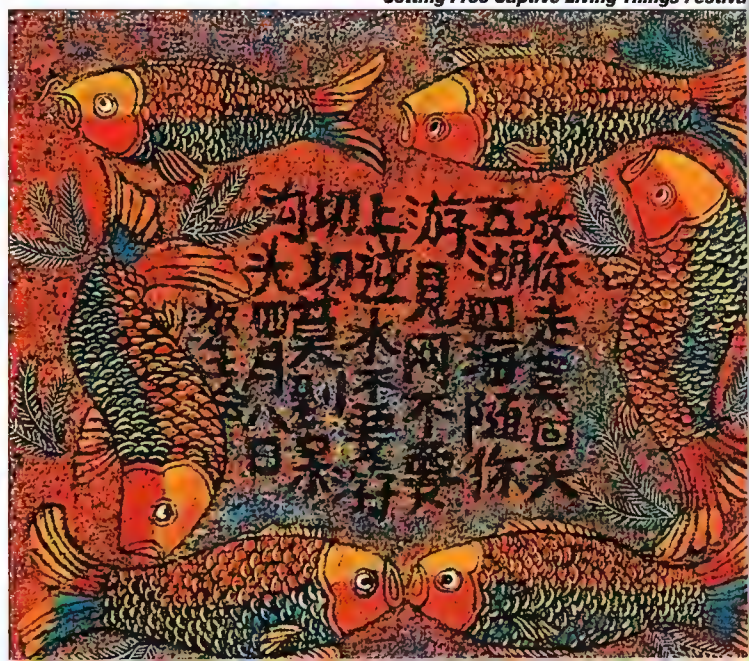 Setting Free Captive Living Things Festiva
放你走莫回头
五湖四海随你
游見网不要
上逆水不要行
切切莫到呆
沟头四月八日
放生